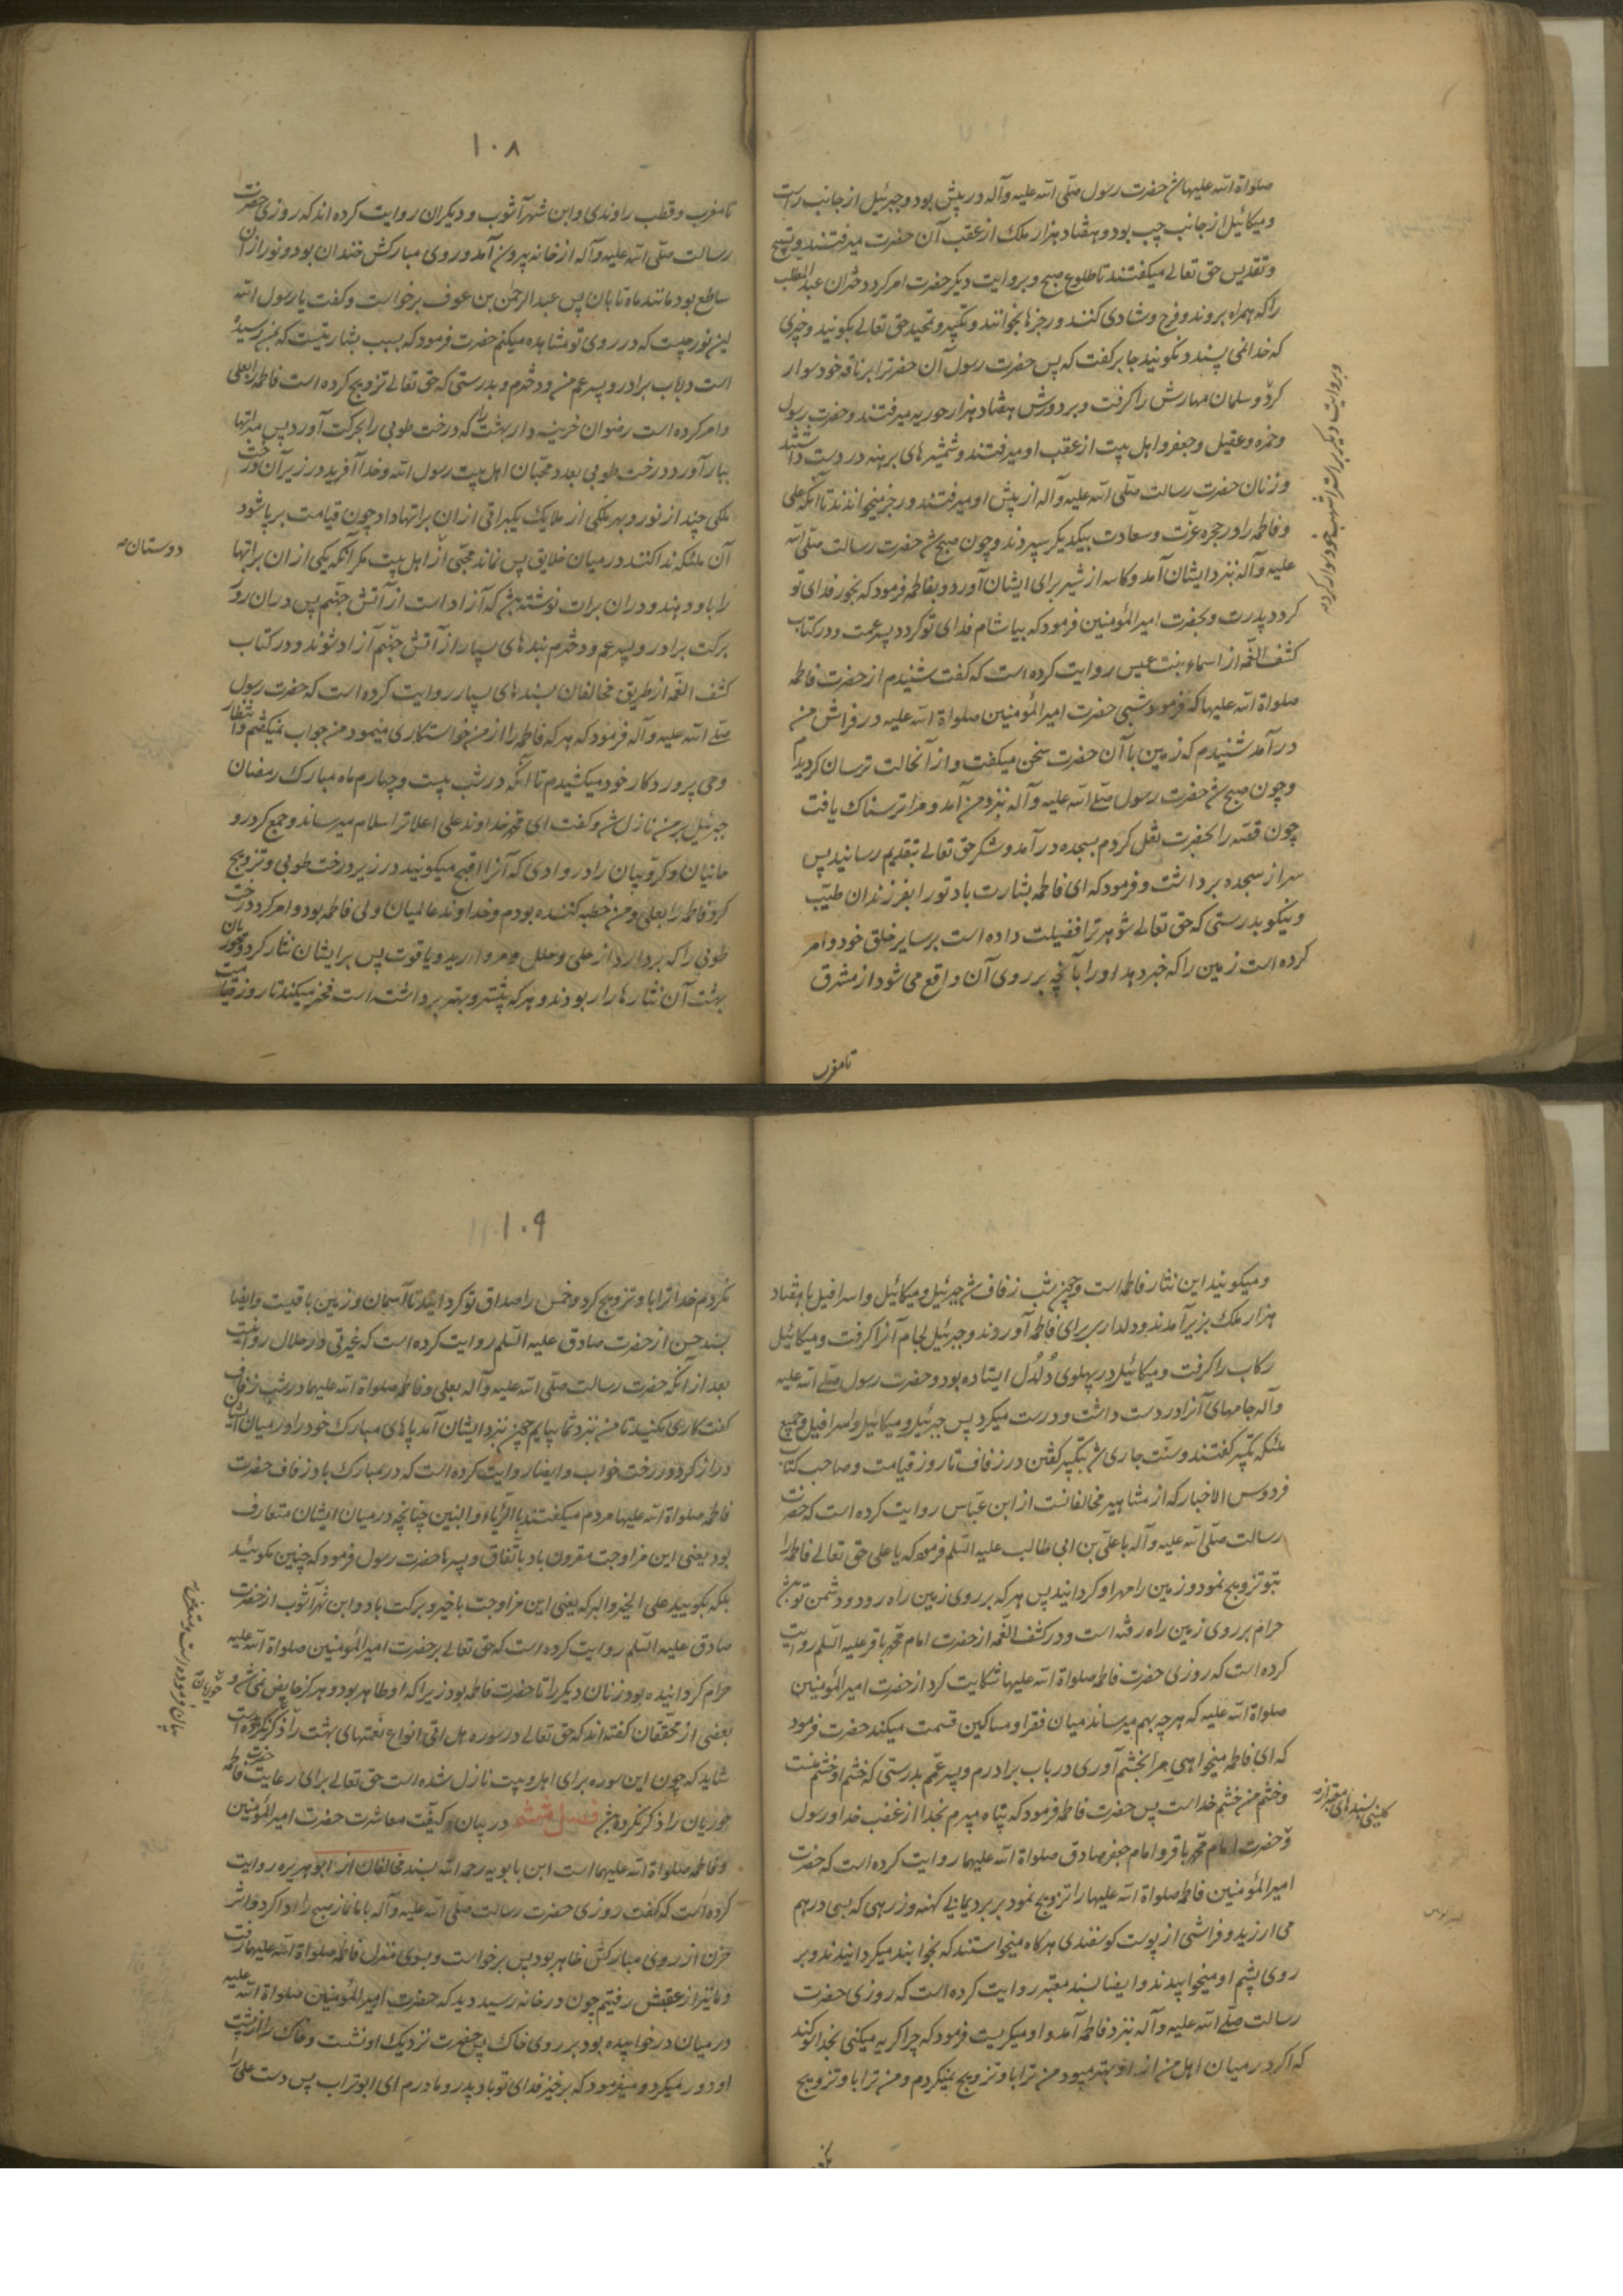 صلواة الله علیها شد حضرت رسول صلی الله علیه وآله در پیش بود و جبرئیل از جانب راست
و میکائیل از جانب چپ بود و هفتاد هزار ملک از عقب آن حضرت میرفتند و تسبیح
و تقدیس حق تعالی میکفتند تا طلوع صبح و بروایت دیکر حضرت امر کرد دختران عبدالمطلب
را که همراه بروند و فرح و شادی کنند و رجزها بخوانند و تکبیر و تحمید حق تعالی بکویند و چیزی
که خدا نمی پسندد نکویند جابر کفت که پس حضرت رسول آن حضرترا بر ناقه خود سوار
کرد و سلمان مهارش را کرفت و بر دورش هفتاد هزار حوریه میرفتند و حضرت رسول
و حمزه و عقیل و جعفر و اهل بیت از عقب او میرفتند و شمشیرهای برهنه در دست داشتند
و زنان حضرت رسالت صلی الله علیه وآله از پیش او میرفتند و رجز میخواندند تا آنکه علی
و فاطمه را در حجره عزّت و سعادت بیکدیکر سپردند و چون صبح شد حضرت رسالت صلی الله
علیه وآله نزد ایشان آمد و کاسه از شیر برای ایشان آورد و بفاطمه فرمود که بخور فدای تو
کردد پدرت و بحضرت امیرالمؤمنین فرمود که بیاشام فدای تو کردد پسر عمت و در کتاب
کشف الغمه از اسماء بنت عمیس روایت کرده است که کفت شنیدم از حضرت فاطمه
صلواة الله علیها که فرمود شبی حضرت امیرالمؤمنین صلواة الله علیه در فراش من
در آمد شنیدم که زمین با آن حضرت سخن میکفت و از آنحالت ترسان کردیدم
و چون صبح شد حضرت رسول صلی الله علیه وآله بنزد من آمد و مرا ترسناک یافت
چون قصّه را بحضرت نقل کردم بسجده در آمد و شکر حق تعالی بتقدیم رسانید پس
سر از سجده برداشت و فرمود که ای فاطمه بشارت باد تورا بفرزندان طیّب
و نیکو بدرستی که حق تعالی شوهر ترا فضیلت داده است بر سایر خلق خود و امر
کرده است زمین را که خبر دهد او را بآنچه بر روی آن واقع می شود از مشرق
تا مغرب
و بروایت دیکر بر استر اشهب خود سوار کرده
۱۰۸
تا مغرب و قطب راوندی و ابن شهرآشوب و دیکران روایت کرده اند که روزی حضرت
رسالت صلی الله علیه وآله از خانه بیرون آمد و روی مبارکش خندان بود و نور از آن
ساطع بود مانند ماه تابان پس عبدالرحمن بن عوف برخواست و کفت یا رسول الله
این نور چیست که در روی تو مشاهده میکنم حضرت فرمود که بسبب بشارتیست که بمن رسیده
است در باب برادر و پسر عم من و دخترم و بدرستی که حق تعالی تزویج کرده است فاطمه را بعلی
و امر کرده است رضوان خزینه دار بهشت را که درخت طوبی را بحرکت آورد پس براتها
ببار آورد درخت طوبی بعدد محبّان اهل بیت رسول الله و خدا آفرید در زیر آن درخت
ملکی چند از نور و بهر ملکی از ملایک یکبراتی از ان براتها داد چون قیامت برپا شود
آن ملئکه ندا کنند در میان خلایق پس نماند محبّی از اهل بیت مکر آنکه یکی از ان براتها
را باو دهند و در ان برات نوشته شد که آزاد است از آتش جهنم پس در ان روز
برکت برادر و پسر عم و دخترم بندهای بسیار از آتش جهنّم آزاد شوند و در کتاب
کشف الغمّه از طریق مخالفان بسندهای بسیار روایت کرده است که حضرت رسول
صلی الله علیه وآله فرمود که هر که فاطمه را از من خواستکاری مینمود من جواب نمیکفتم و انتظار
وحی پروردکار خود میکشیدم تا آنکه در شب بیست و چهارم ماه مبارک رمضان
جبرئیل بر من نازل شد و کفت ای محمد خداوند علی اعلا ترا سلام میرساند و جمع کرد رو
حانیان و کروّبیان را در وادی که آنرا افیح میکویند در زیر درخت طوبی و تزویج
کرد فاطمه را بعلی و من خطبه کننده بودم و خداوند عالمیان ولی فاطمه بود و امر کرد درخت
طوبی را که بردارد از حلی و حلل و مروارید و یاقوت پس بر ایشان نثار کرد و حوریان
بهشت آن نثارها را ربودند و هر که بیشتر و بهتر برداشته است فخر میکند تا روز قیامت
دوستان
و میکویند این نثار فاطمه است و چون شب زفاف شد جبرئیل و میکائیل و اسرافیل با هفتاد
هزار ملک بزیر آمدند و دلدل برای فاطمه آوردند و جبرئیل لجام آنرا کرفت و میکائیل
رکاب را کرفت و میکائیل در پهلوی دُلدُل ایستاده بود و حضرت رسول صلی الله علیه
وآله جامهای آنرا در دست داشت و درست میکرد پس جبرئیل و میکائیل و اسرافیل و جمیع
ملئکه تکبیر کفتند و سنّت جاری شد تکبیر کفتن در زفاف تا روز قیامت و صاحب کتاب
فردوس الاخبار که از مشاهیر مخالفانست از ابن عباس روایت کرده است که حضرت
رسالت صلی الله علیه وآله با علی بن ابی طالب علیه السلم فرمود که یا علی حق تعالی فاطمه را
بتو تزویج نمود و زمین را مهر او کردانید پس هر که بر روی زمین راه رود و دشمن تو باشد
حرام بر روی زمین راه رفته است و در کشف الغمه از حضرت امام محمد باقر علیه السلم روایت
کرده است که روزی حضرت فاطمه صلواة الله علیها شکایت کرد از حضرت امیرالمؤمنین
صلواة الله علیه که هر چه بهم میرساند میان فقرا و مساکین قسمت میکند حضرت فرمود
که ای فاطمه میخواهی مرا بخشم آوری در باب برادرم و پسر عمّم بدرستی که خشم او خشم منست
و خشم من خشم خداست پس حضرت فاطمه فرمود که پناه میبرم بخدا از غضب خدا و رسول
و حضرت امام محمد باقر و امام جعفر صادق صلواة الله علیهما روایت کرده است که حضرت
امیرالمؤمنین فاطمه صلواة الله علیها را تزویج نمود بر برد یمانی کهنه و زرهی که بسی درهم
می ارزید و فراشی از پوست کوسفندی هرکاه میخواستند که بخوابند میکردانیدند و بر
روی پشم او میخوابیدند و ایضا بسند معتبر روایت کرده است که روزی حضرت
رسالت صلی الله علیه وآله بنزد فاطمه آمد و او میکریست فرمود که چرا کریه میکنی بخدا سوکند
که اکر در میان اهل من از او بهتر میبود من ترا باو تزویج نمیکردم و من ترا باو تزویج
کلینی بسندهای معتبر از
۱۰۹
نکردم خدا ترا باو تزویج کرد و خمس را صداق تو کردانید تا آسمان و زمین باقیست و ایضا
بسند حسن از حضرت صادق علیه السلم روایت کرده است که غیرتی در حلال روا نیست
بعد از آنکه حضرت رسالت صلی الله علیه وآله بعلی و فاطمه صلواة الله علیهما در شب زفاف
کفت کاری مکنید تا من نزد شما بیایم چون نزد ایشان آمد پاهای مبارک خود را در میان ایشان
دراز کرد در رخت خواب و ایضا روایت کرده است که در مبارک باد زفاف حضرت
فاطمه صلواة الله علیها مردم میکفتند بالرّفاء و البنین چنانچه در میان ایشان متعارف
بود یعنی این مزاوجت مقرون باد باتفاق و پسرها حضرت رسول فرمود که چنین مکوئید
بلکه بکویید علی الخیر والبرکه یعنی این مزاوجت با خیر و برکت باد و ابن شهرآشوب از حضرت
صادق علیه السلم روایت کرده است که حق تعالی بر حضرت امیرالمؤمنین صلواة الله علیه
حرام کردانیده بود زنان دیکر را تا حضرت فاطمه بود زیرا که او طاهر بود و هرکز حایض نمی شد و
بعضی از محققان کفته اند که حق تعالی در سوره هل اتی انواع نعمتهای بهشت را ذکر کرده است
شاید که چون این سوره برای اهل بیت نازل شده است حق تعالی برای رعایت حضرت فاطمه
حوریان را ذکر نکرده باشد فصل ششم در بیان کیفیّت معاشرت حضرت امیرالمؤمنین
و فاطمه صلواة الله علیهما است ابن بابویه رحمه الله بسند مخالفان از ابو هریره روایت
کرده است که کفت روزی حضرت رسالت صلی الله علیه وآله با ما نماز صبح را ادا کرد و اثر
حزن از روی مبارکش ظاهر بود پس برخواست و بسوی منزل فاطمه صلواة الله علیها رفت
و ما نیز از عقبش رفتیم چون در خانه رسید دید که حضرت امیرالمؤمنین صلواة الله علیه
در میان در خوابیده بود بر روی خاک پس حضرت نزدیک او نشست و خاک را از پشت
او دور میکرد و میفرمود که برخیز فدای تو باد پدر و مادرم ای ابوتراب پس دست علی را